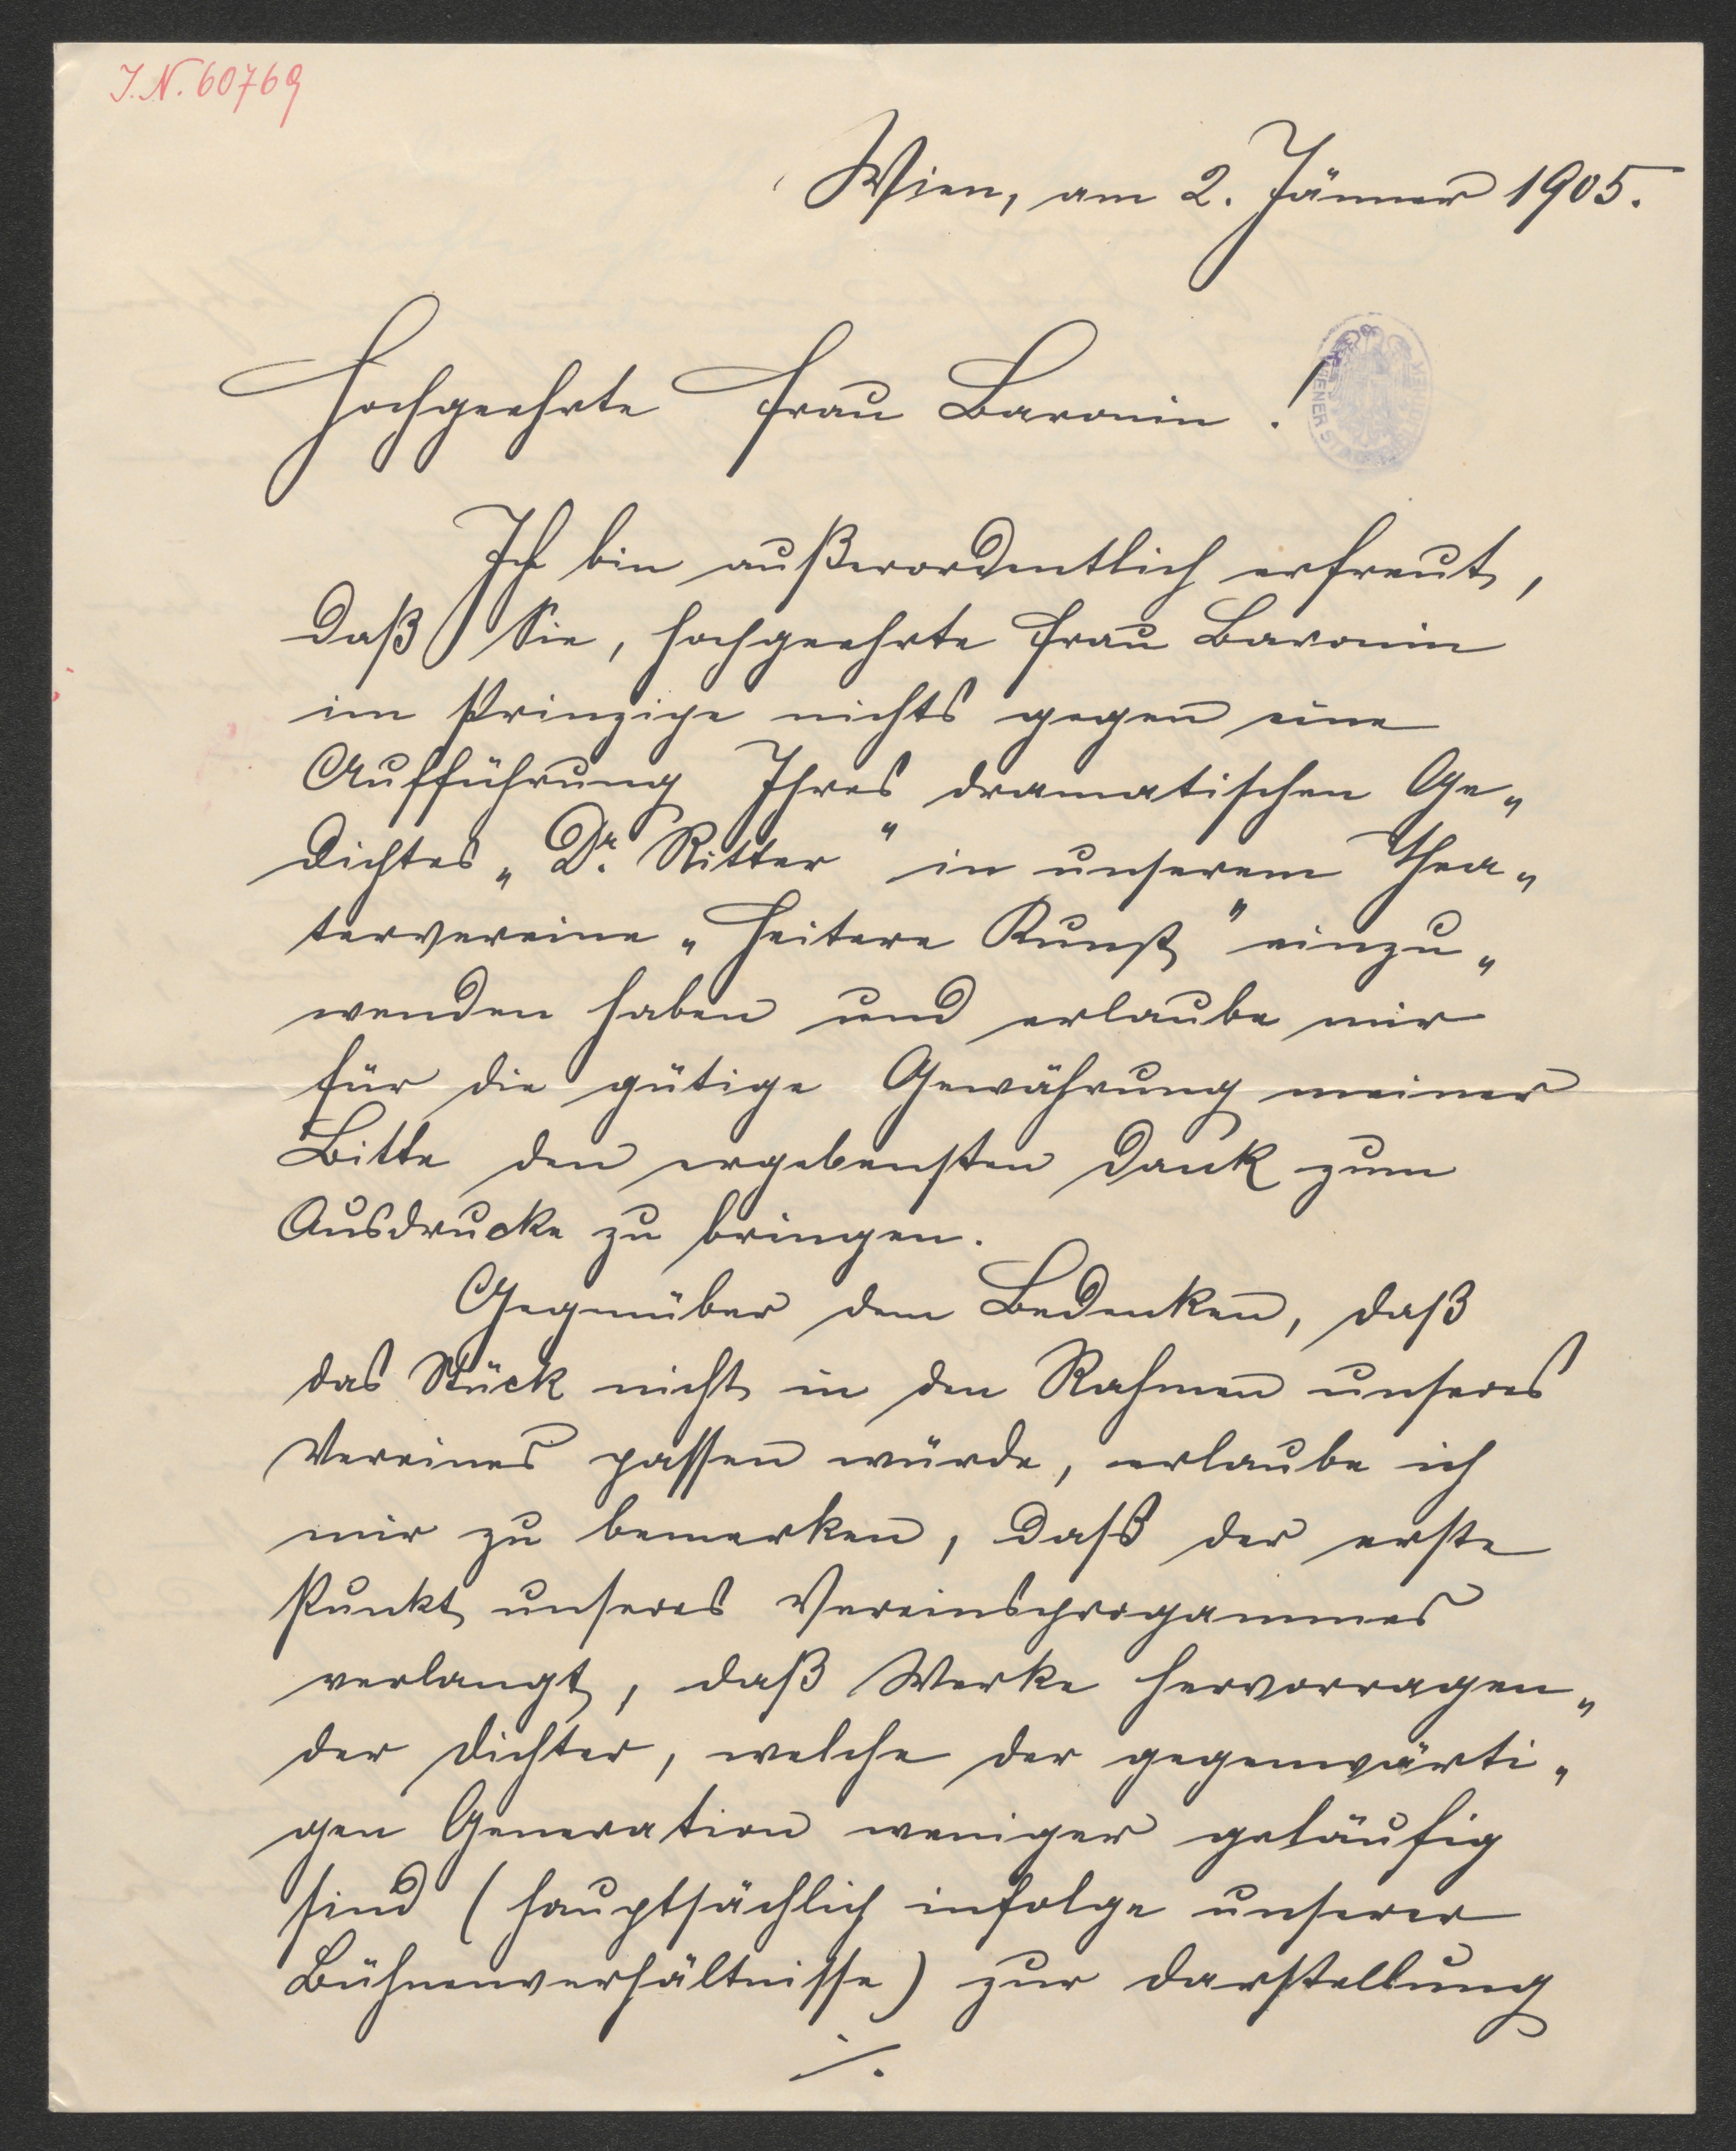 J.N. 60769
Wien, am 2. Jänner 1905.
Hochgeehrte Frau Baronin!
Ich bin außerordentlich erfreut,
daß Sie, hochgeehrte Frau Baronin
im Prinzipe nichts gegen eine
Aufführung Ihres dramatischen Ge„
dichtes „Dr. Ritter“ in unserem Thea„
tervereine „Heitere Kunst“ einzu„
wenden haben und erlaube mir
für die gütige Gewährung meiner
Bitte den ergebensten Dank zum
Ausdrucke zu bringen.
Gegenüber dem Bedenken, daß
das Stück nicht in den Rahmen unseres
Vereines passen würde, erlaube ich
mir zu bemerken, daß der erste
Punkt unseres Vereinsprogammes
verlangt, daß Werke hervorragen„
der Dichter, welche der gegenwärti„
gen Generation weniger geläufig
sind (hauptsächlich infolge unserer
Bühnenverhältnisse) zur Darstellung
./.